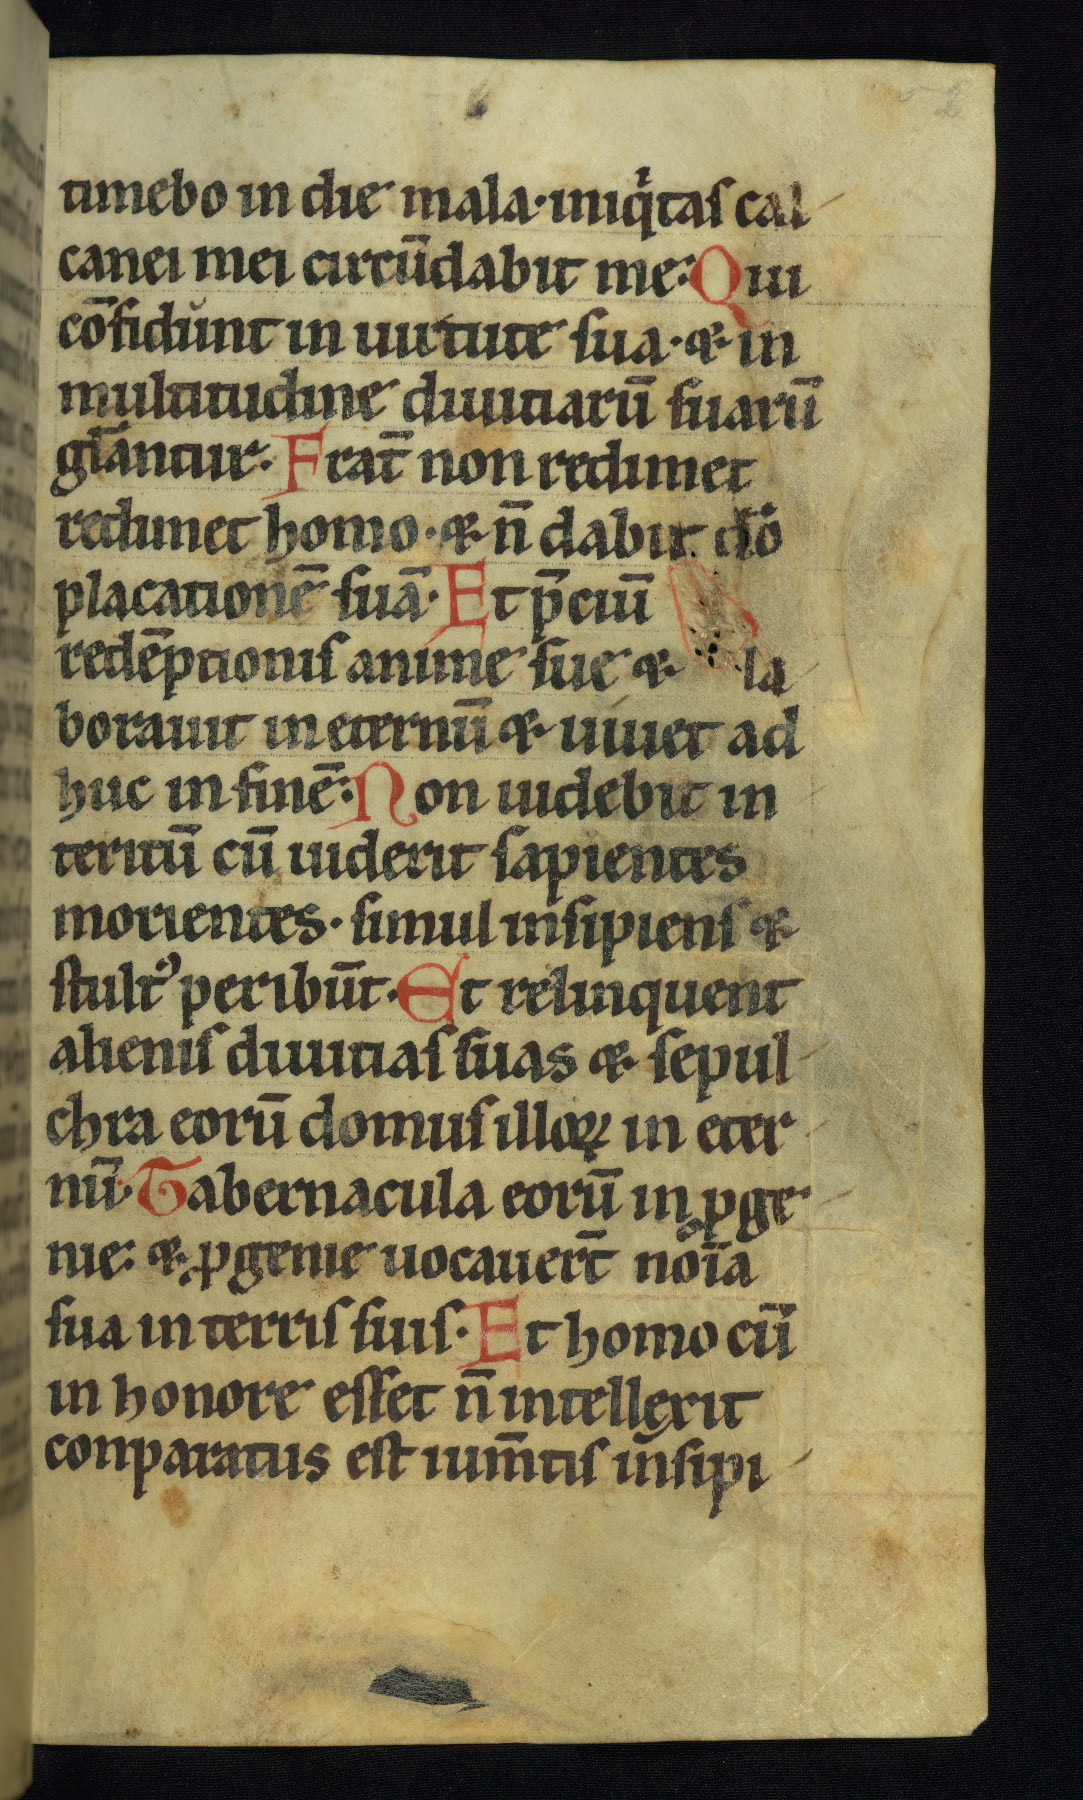 timebo in die mala· iniq̇tas cal
canei mei circūdabit me: Qui
cōfidunt in uirtute sua· & in
multitudine diuitiarū suarū
gl̄antur. Frat̄ non redimet
redimet homo· & n̄ dabit dō
placationē suā· Et p̄ciū
redēptionis anime sue & la
borauit in eternū & uiuet ad
huc in finē: Non uidebit in
teritū cū uiderit sapientes
morientes· simul insipiens &
stultꝰ peribūt· Et relinquent
alienis diuitias suas & sepul
chra eorū domus illoꝝ in eter
nū· Tabernacula eorū in ꝓge
nie: & ꝓgenie uocauer̄t noīa
sua in terris suis· Et homo cū
in honore esset n̄ intellexit
conparatus est ium̄tis insipi